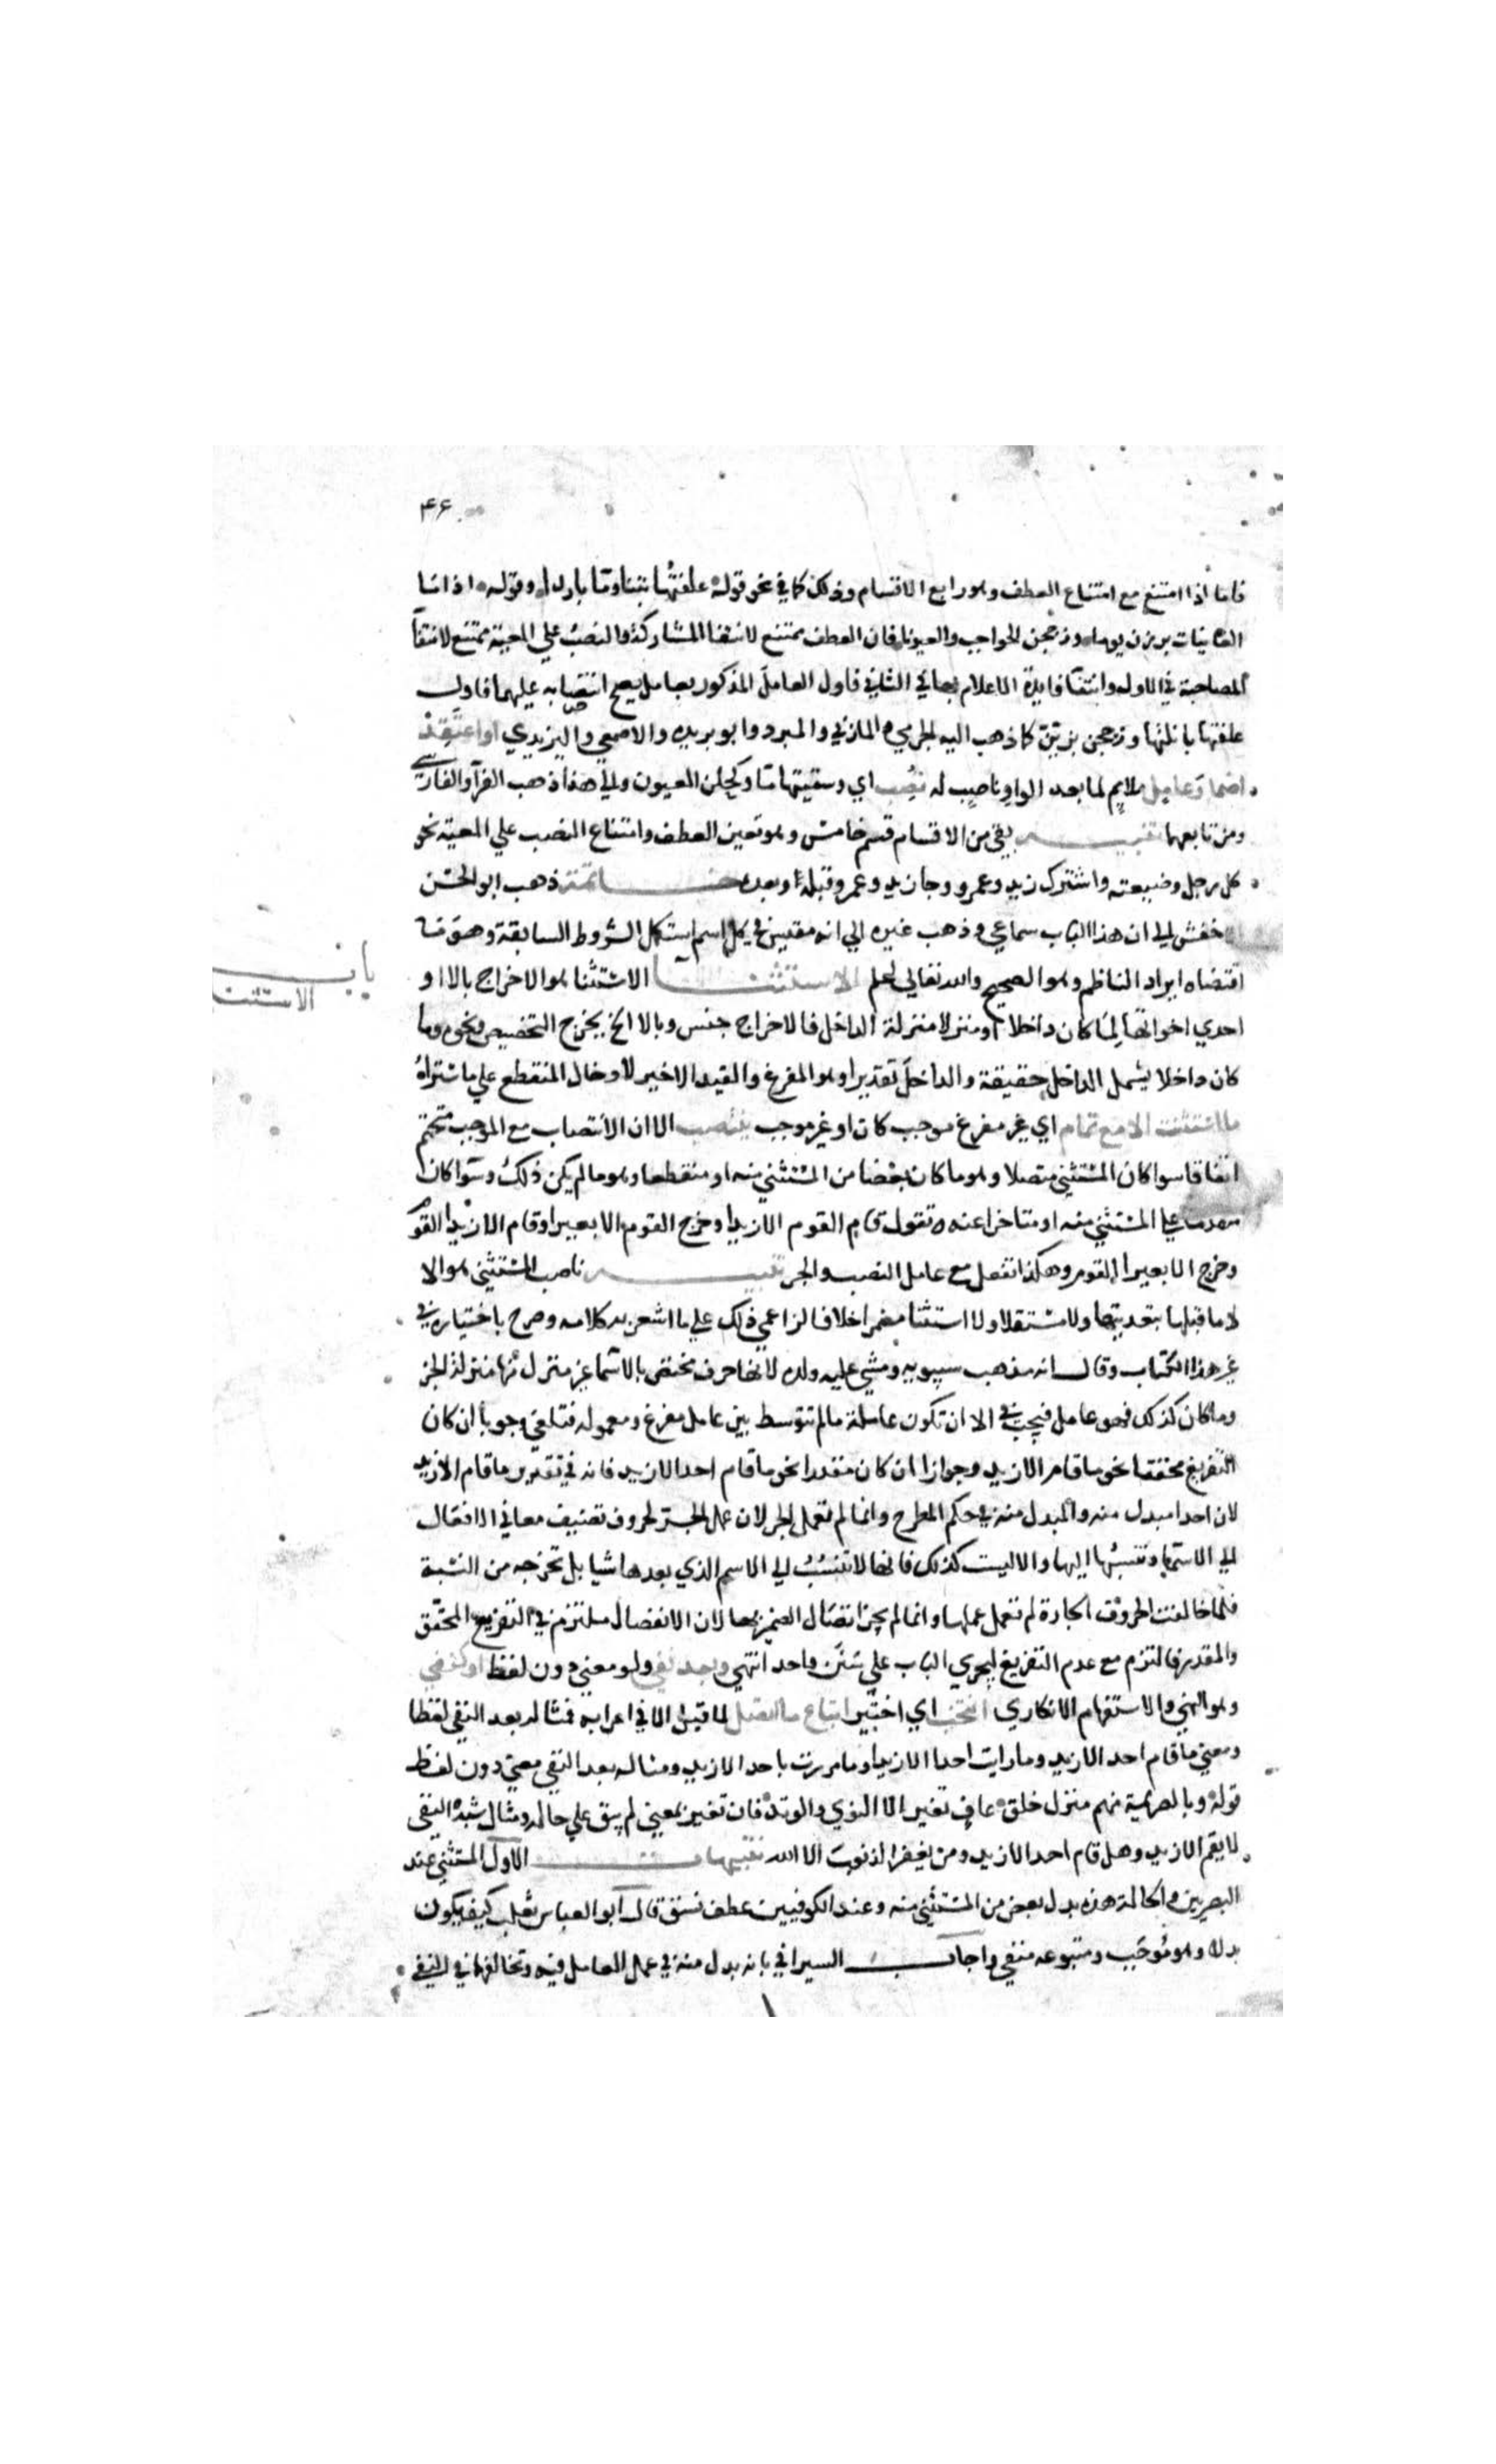 ۴۶
فاما اذا امتنع مع امتناع العطف وهو رابع الاقسام وذلك كما في نحو قوله علفتها تبنا وما باردا وقوله اذا ما
الغانيات برزن يوما وزججن الحواجب والعيونا فان العطف ممتنع لانتفا المشاركة والنصب علي المعية ممتنع لانتفا
المصاحبة في الاول وانتفا فايدة الاعلام بها في الثاني فاول العامل المذكور بعامل يصح انتصابه عليهما فاول
علفتها بانلتها وزججن بزين كما ذهب اليه الجرمي و المازني والمبرد وابو عبيده والاصمعي واليزيدي او اعتقد
اضمار عامل ملايم لما بعد الواو ناصب له نصب اي وسقيتها ما وكحلن العيون والي هذا ذهب الفرآ والفارسي
ومن تابعهما تنبيه بقي من الاقسام قسم خامس وهو تعين العطف وامتناع النصب علي المعية نحو
كل رجل وضيعته واشترك زيد وعمرو وجا زيد وعمرو قبله او بعده خاتمة ذهب ابو الحسن
الاخفش الي ان هذا الباب سماعي وذهب غيره الي انه مقيس في كل اسم استكمل الشروط السابقة وهو ما
اقتضاه ايراد الناظم وهو الصحيح والله تعالي اعلم الاستثنا الاستثنا هو الاخراج بالا او
باب
الاستثنا
احدي اخواتها لما كان داخلا او منزلا منزلة الداخل فالاخراج جنس وبالا الخ يخرج التخصيص ونحوه وما
كان داخلا يشمل الداخل حقيقة والداخل تقديرا وهو المفرغ والقيد الاخير لادخال المنقطع علي ما ستراه
ما استثنت الا مع تمام اي غير مفرغ موجب كان او غير موجب ينتصب الا ان الانتصاب مع الموجب متحتم
اتفاقا سوا كان المستثني متصلا وهو ما كان بعضا من المستثني منه او منقطعا وهو ما لم يكن ذلك وسوآ كان
متقدما علي المستثني منه او متاخرا عنه تقول قام القوم الا زيدا وخرج القوم الا بعيرا وقام الا زيدا القوم
وخرج الا بعيرا القوم وهكذا تفعل مع عامل النصب والجر تنبيه ناصب المستثني هو الا
لا ما قبلها بتعديتها ولا مستقلا ولا استثنا مضمرا خلافا لزاعمي ذلك علي ما اشعر به كلامه وصرح باختياره في
غير هذا الكتاب وقال انه مذهب سيبويه ومشي عليه ولده لانها حرف مختص بالاسما غير منزل منها منزلة الجز
وما كان كذلك فهو عامل فيجب في الا ان تكون عاملة ما لم تتوسط بين عامل مفرغ ومعموله فتلغي وجوبا ان كان
التفريغ محققا نحو ما قام الا زيد وجوازا ان كان مقدرا نحو ما قام احد الا زيد فانه في تقدير ما قام الا زيد
لان احدا مبدل منه والمبدل منه في حكم المطرح وانما لم تعمل الجر لان عمل الجر لحروف تضيف معاني الافعال
الي الاسما وتنسبها اليها والا ليست كذلك فانها لا تنسب الي الاسم الذي بعدها شيا بل تخرجه من النسبة
فلما خالفت الحروف الجارة لم تعمل عملها وانما لم يجز اتصال الضمير بها لان الانفصال ملتزم في التفريغ المحقق
والمقدر فالتزم مع عدم التفريغ ليجري الباب علي سنن واحد انتهي وبعد نفي ولو معني دون لفظ او كنفي
وهو النهي والاستفهام الانكاري انتخب اي اختير اتباع ما اتصل لما قبل الا في اعرابه فمثاله بعد النفي لفظا
ومعني ما قام احد الا زيد وما رايت احدا الا زيدا وما مررت باحد الا زيد ومثاله بعد النفي معني دون لفظ
قوله وبالصريمة منهم منزل خلق عاف تغير الا النوي والوتد فان تغير بمعني لم يبق علي حاله ومثال شبه النفي
لا يقم الا زيد وهل قام احد الا زيد ومن يغفر الذنوب الا الله تنبيهات الاول المستثني عند
البصريين والحالة هذه بدل بعض من المستثني منه وعند الكوفيين عطف نسق قال ابو العباس ثعلب كيف يكون
بدلا وهو موجب ومتبوعه منفي واجاب السيرافي بانه بدل منه في عمل العامل فيه وتخالفهما في النفي